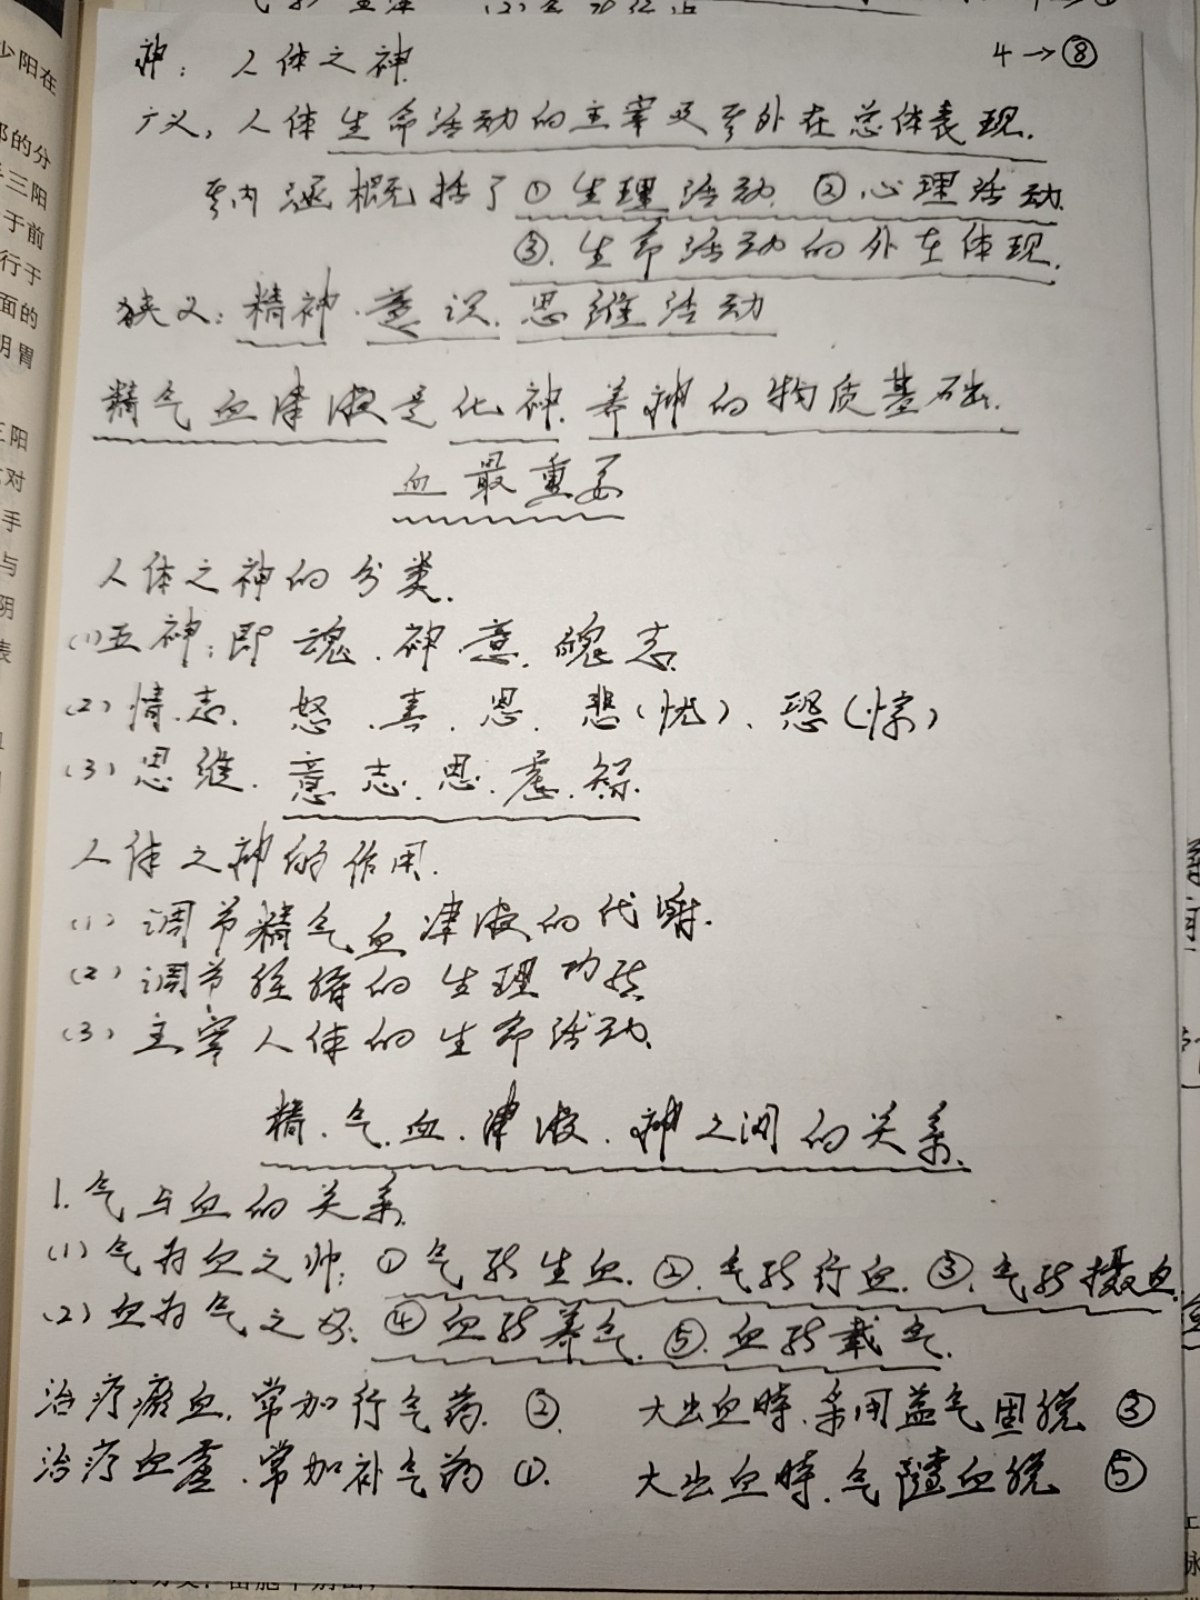 神：人体之神
4→⑧
广义，人体生命活动的主宰及其外在总体表现.
其内涵概括了①生理活动.②心理活动.
③.生命活动的外在体现.
狭义：精神.意识.思维活动
精气血津液是化神.养神的物质基础.
血最重要
人体之神的分类.
(1)五神：即 魂.神.意.魄.志.
(2)情志. 怒.喜.思.悲(忧)、恐(惊)
(3)思维. 意.志.思.虑.智.
人体之神的作用.
(1)调节精气血津液的代谢.
(2)调节脏腑的生理功能
(3)主宰人体的生命活动.
精.气.血.津液.神之间的关系.
1.气与血的关系.
(1)气为血之帅：①气能生血.②.气能行血.③.气能摄血.
(2)血为气之母：④血能养气.⑤.血能载气.
治疗瘀血.常加行气药.②. 大出血時.采用益气固脱 ③
治疗血虚.常加补气药 ①. 大出血時.气隨血脱 ⑤
少阳在
部的分
三阳
于前
行于
面的
明胃
三阳
对
手
与
阴
表